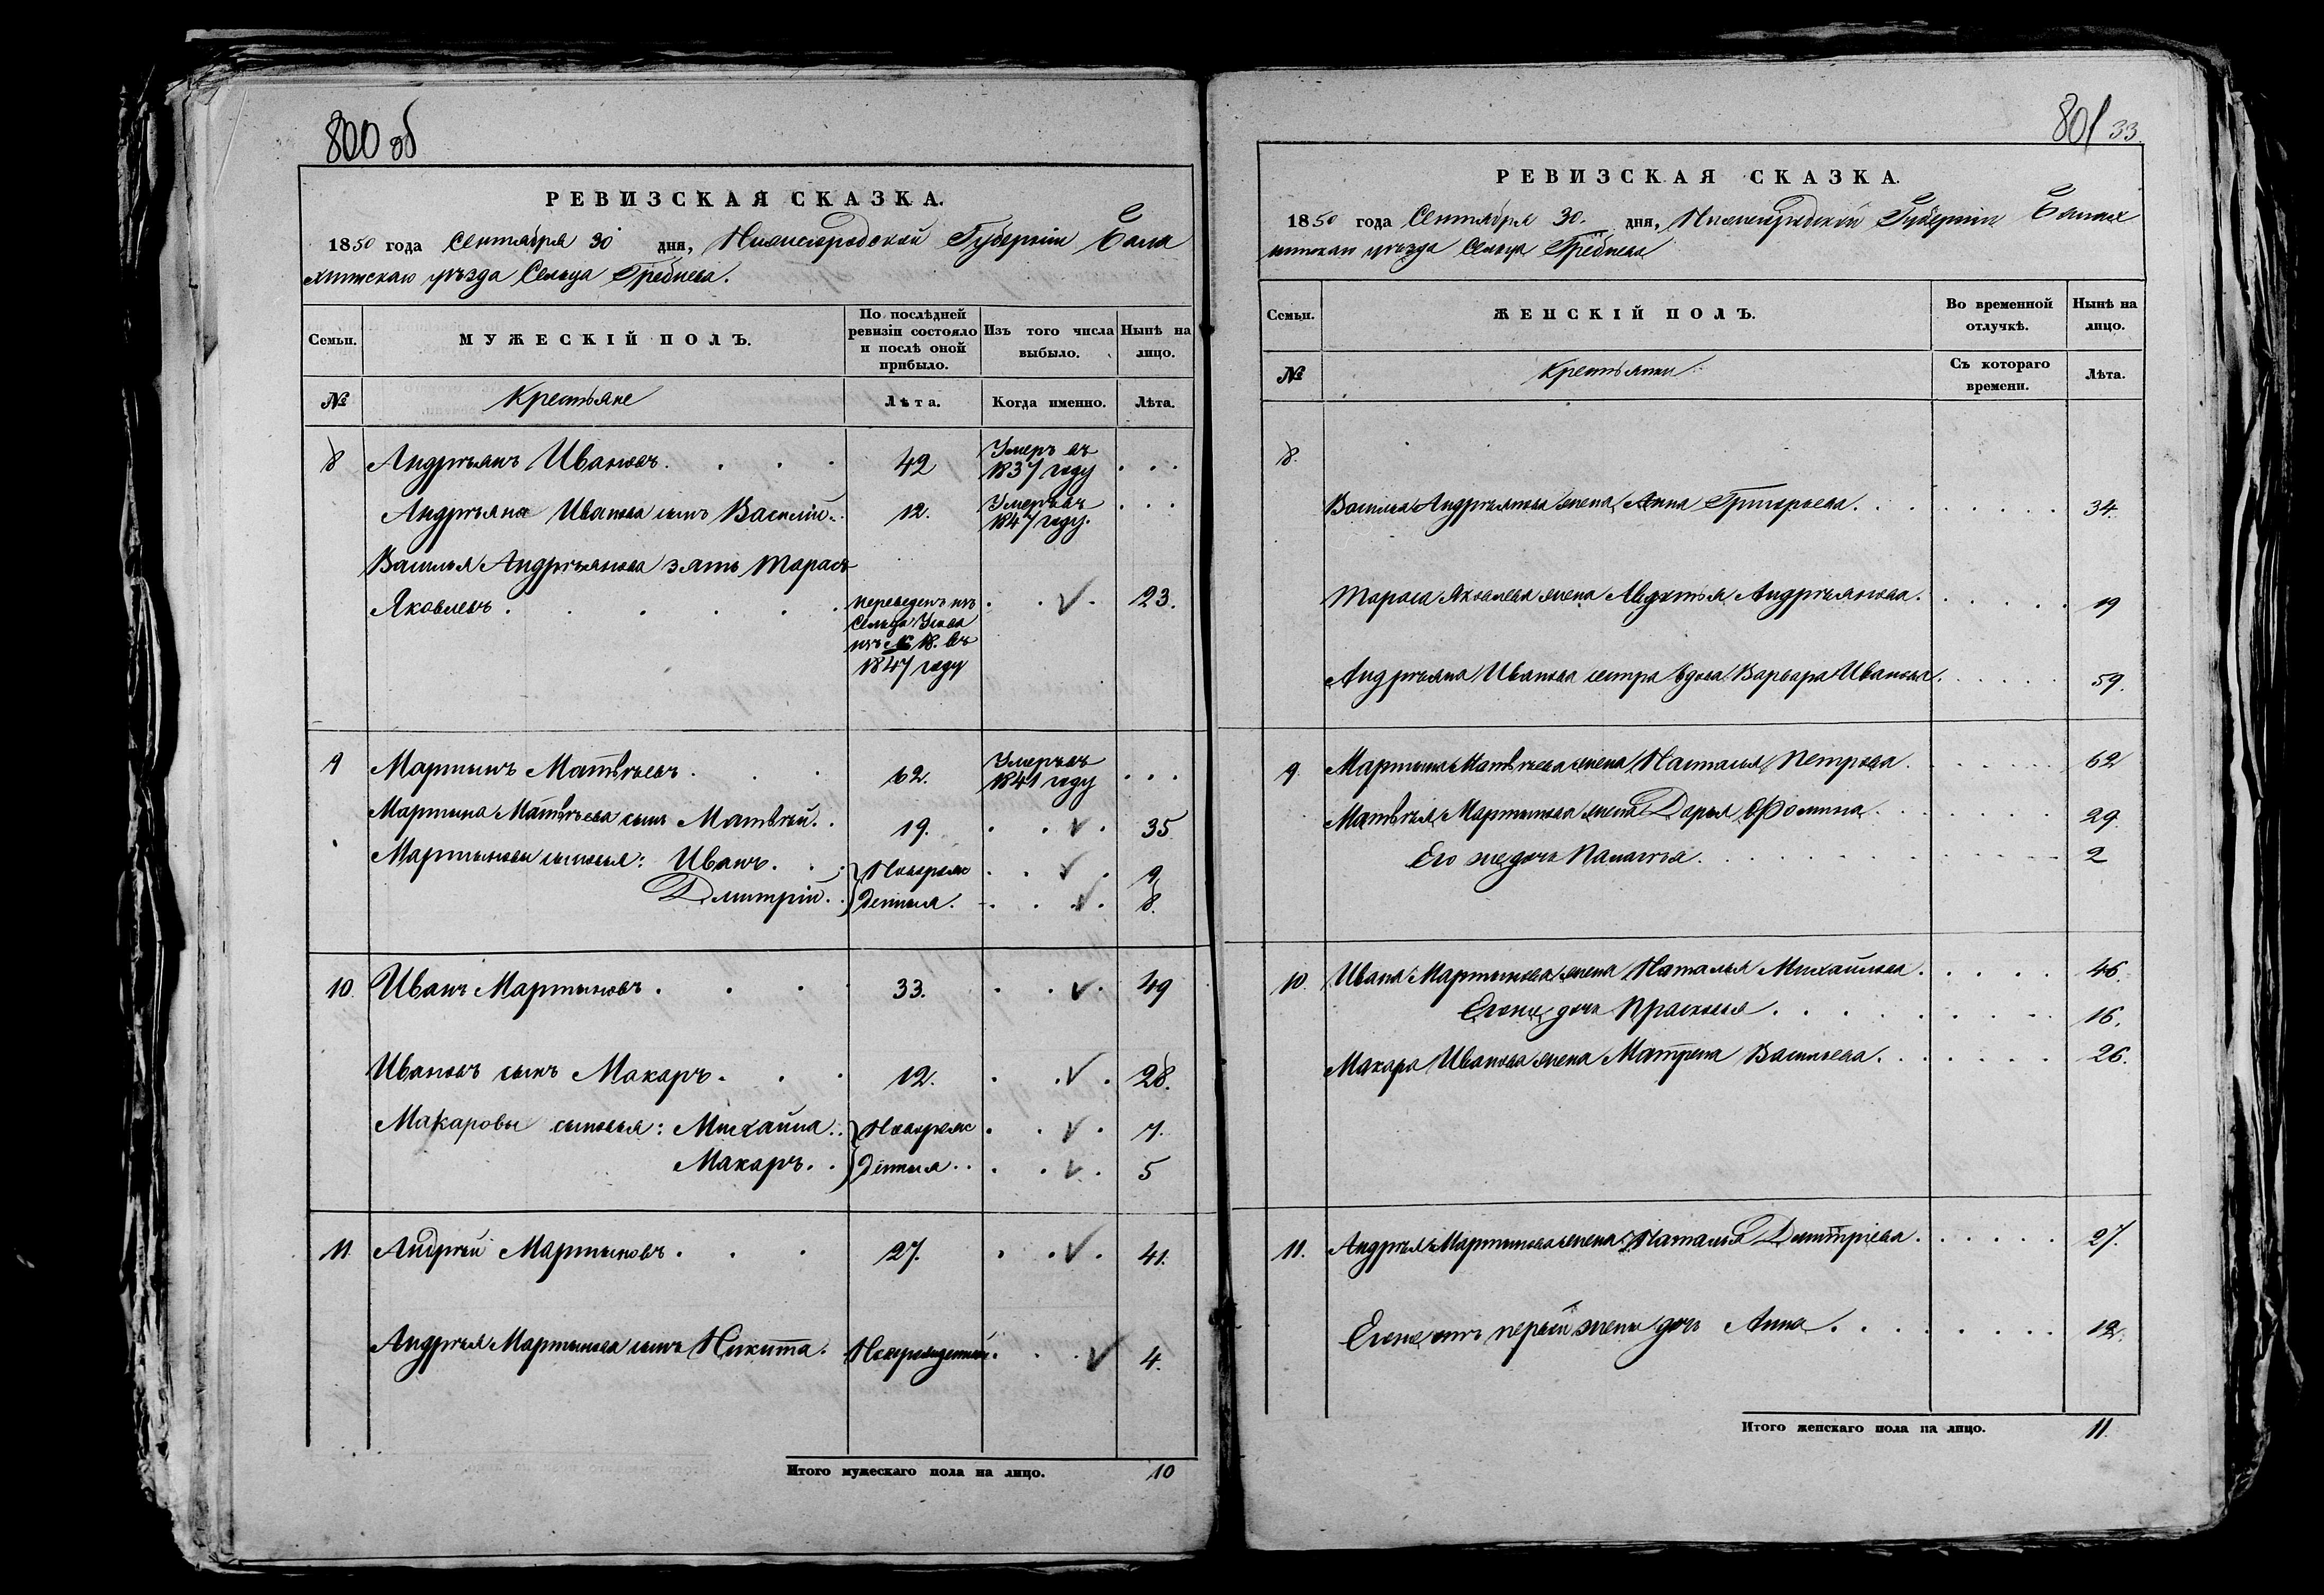 800 об
РЕВИЗСКАЯ СКАЗКА.
1850 года Сентября 30 дня, Нижегородской Губерніи Бала
хнинскаго уѣзда Сельца Гребнева.
Семьи. МУЖЕСКІЙ ПОЛЪ. По послѣдней ревизіи состояло и послѣ оной прибыло. Изъ того числа выбыло. Нынѣ на лицо.
№ Крестьяне Лѣта. Когда именно. Лѣта.
8 Андрѣянъ Ивановъ. 42 Умеръ въ 1837 году
Андрѣяна Иванова сынъ Василій. 12. Умеръ въ 1847 году.
Василья Андрѣянова зять Тарасъ
Яковлевъ. переведенъ изъ 23.
Сельца
изъ № 18. въ
1847 году
9 Мартынъ Матвѣевъ. 62. Умеръ въ 1841 году
Мартына Матвѣева сынъ Матвѣй. 19. 35
Мартыновы сыновья: Иванъ. Новорож 9
Дмитрій. денныя. 8.
10. Иванъ Мартыновъ. 33. 49
Ивановъ сынъ Макаръ. 12. 28.
Макаровы сыновья: Михайла. Новорож 7.
Макаръ. денныя. 5
11 Андрѣй Мартыновъ. 27. 41.
Андрѣя Мартынова сынъ Никита. Новорожденный. 4.
Итого мужескаго пола на лицо. 10
801 33.
РЕВИЗСКАЯ СКАЗКА.
1850 года Сентября 30. дня, Нижегородской Губерніи Балах
нинскаго уѣзда Сельца Гребнева
Семьи. ЖЕНСКІЙ ПОЛЪ. Во временной отлучкѣ. Нынѣ на лицо.
№ Крестьянки Съ котораго времени. Лѣта.
8.
Василья Андрѣянова жена Анна Григорьева. 34.
Тараса Яковлева жена Авдотья Андрѣянова. 19
Андрѣяна Иванова сестра вдова Варвара Иванова. 59.
9. Мартына Матвѣева жена Настасья Петрова. 62
Матвѣя Мартынова жена Дарья Фомина. 29.
Его же дочь Палагѣя. 2
10. Ивана Мартынова жена Наталья Михайлова. 46.
Его же дочь Прасковья. 16.
Макара Иванова жена Матрена Васильева. 26.
11. Андрѣя Мартынова жена Наталья Дмитріева. 27.
Его же отъ первой жены дочь Анна. 12.
Итого женскаго пола на лицо. 11.